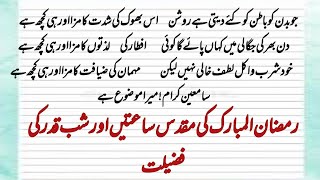 جو بدن کو باطن کو کئے دیتی ہے روشن اس بھوک کی شدت کا مزا اور ہی کچھ ہے
دن بھر کی جگالی میں کہاں پائے گا کوئی افطار کی لذتوں کا مزا اور ہی کچھ ہے
خود شرب و اکل لطف خالی نہیں لیکن مہمان کی ضیافت کا مزا اور ہی کچھ ہے
سامعین کرام! میرا موضوع ہے
رمضان المبارک کی مقدس ساعتیں اور شب قدر کی
فضیلت